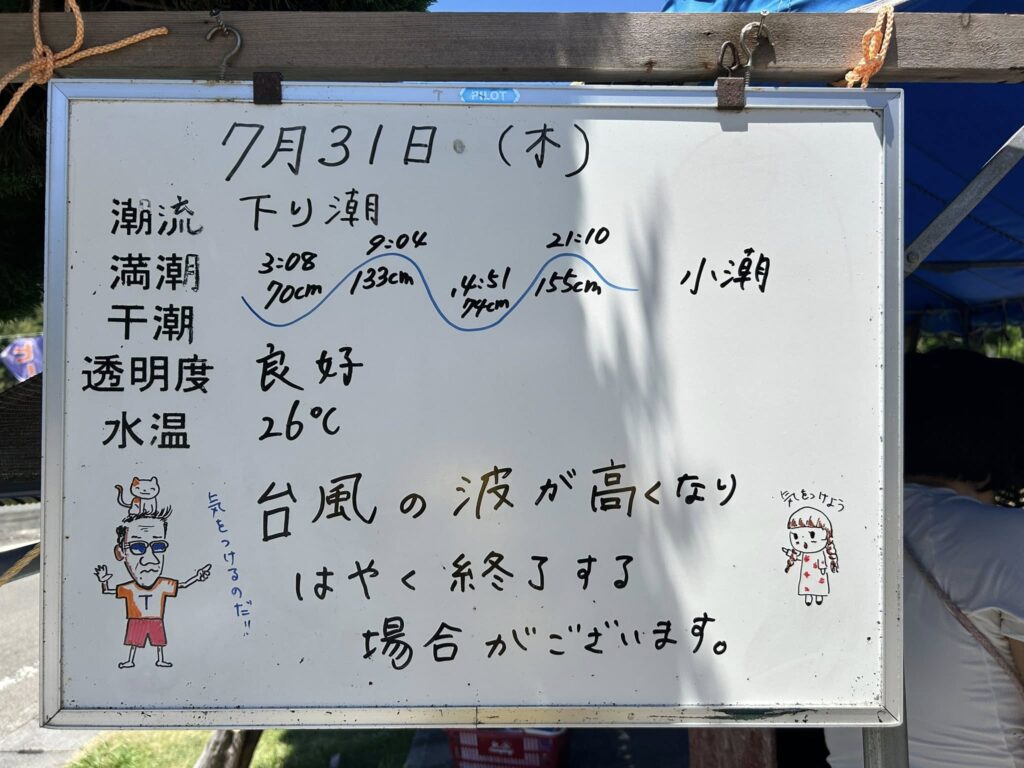 PILOT
7月31日(木)
潮流 下り潮
満潮 3:08 70cm 9:04 133cm 14:51 74cm 21:10 155cm 小潮
干潮
透明度 良好
水温 26℃
台風の波が高くなり
はやく終了する
場合がございます。
気をつけるのだ!!
T
気をつけよう